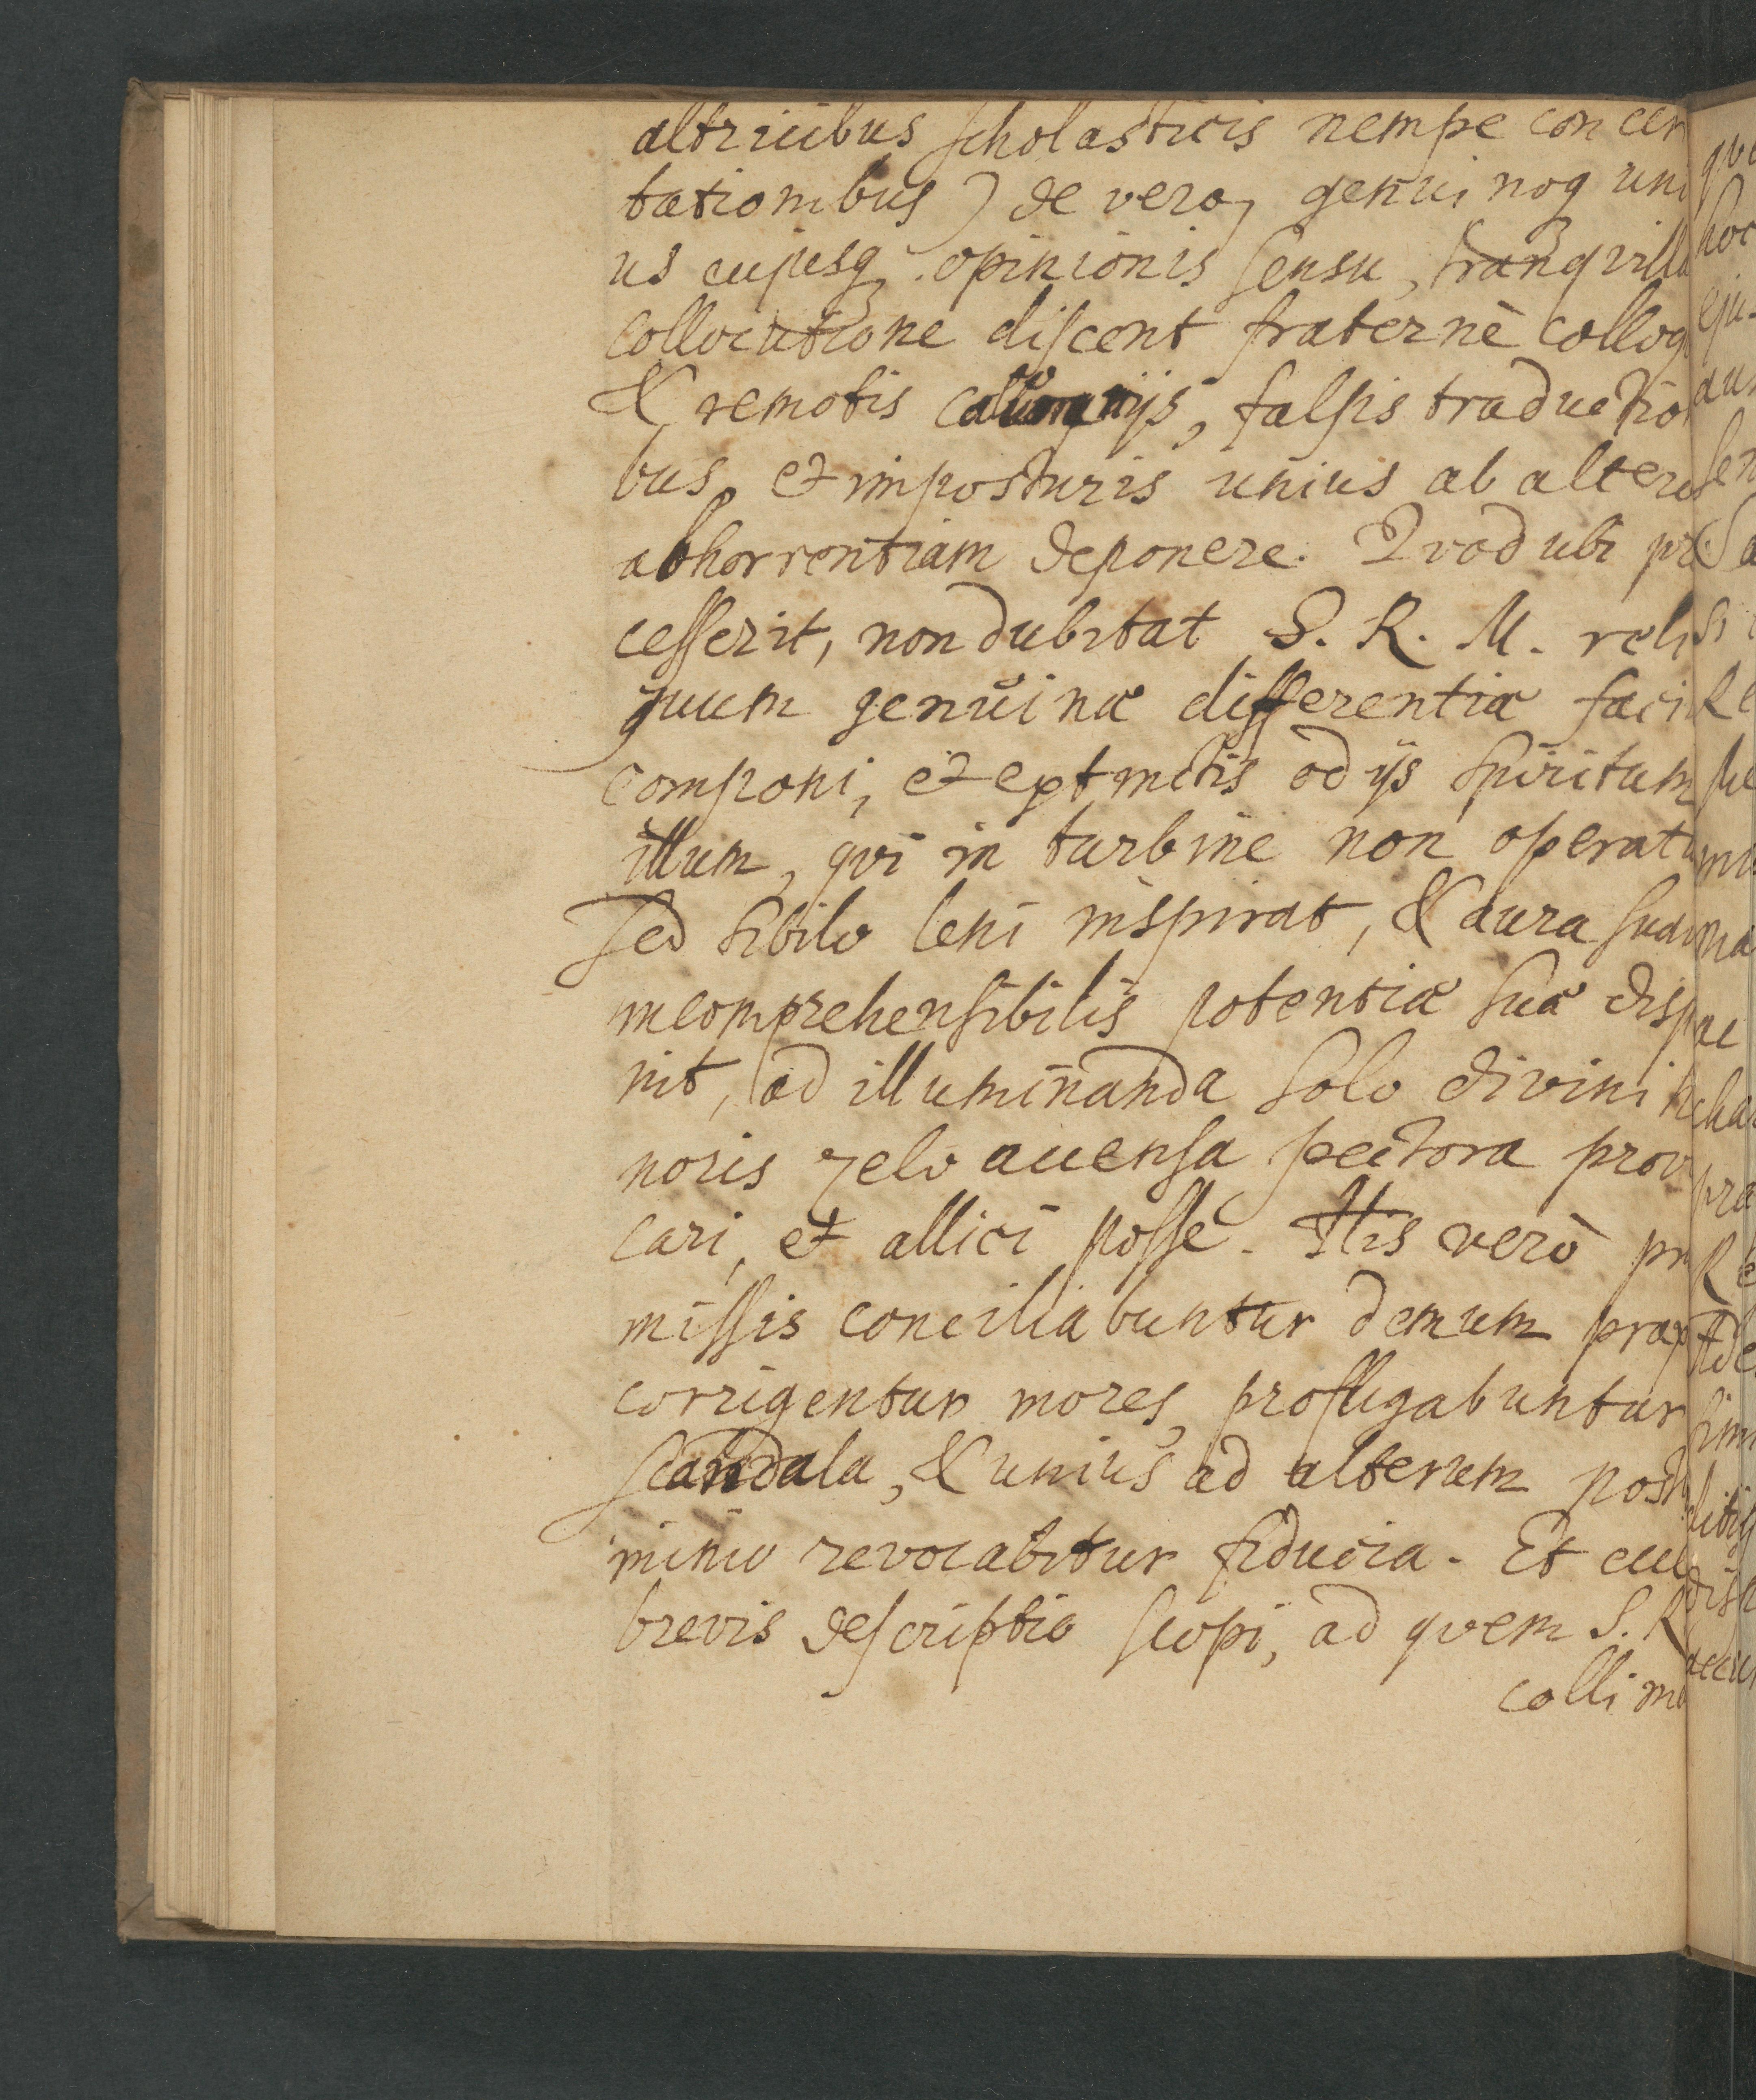 altricibus scholasticis nempe concer
tationibus) de vero, genuinoq uni
us cujusq opinionis sensu, tranqvilla
collocutione discent fraternè colloq
& remotis calumnijs, falsis traductio
bus, et imposturis unius ab altero
abhorrentiam deponere. Qvod ubi pro
cesserit, non dubitat S. R. M. reli
quum genuinæ differentiæ faci
componi, et extinctis odijs Spiritum
illum, qvi in turbine non operatu
sed sibilo leni inspirat, & aura sua
incomprehensibilis potentiæ suæ disp
nit, ad illuminanda solo divini h
noris zelo accensa pectora prov
cari, et allici posse. His verò præ
missis conciliabuntur demum prax
corrigentur mores, profligabuntur
scandala, & unius ad alterum postli
minio revocabitur fiducia. Et
brevis descriptio scopi, ad qvem S. R
collim
qvi
hoc
eju
aus
sen
Sa
si
Re
pe
mi
ma
ac
cha
pra
Re
Ade
sim
litig
dis